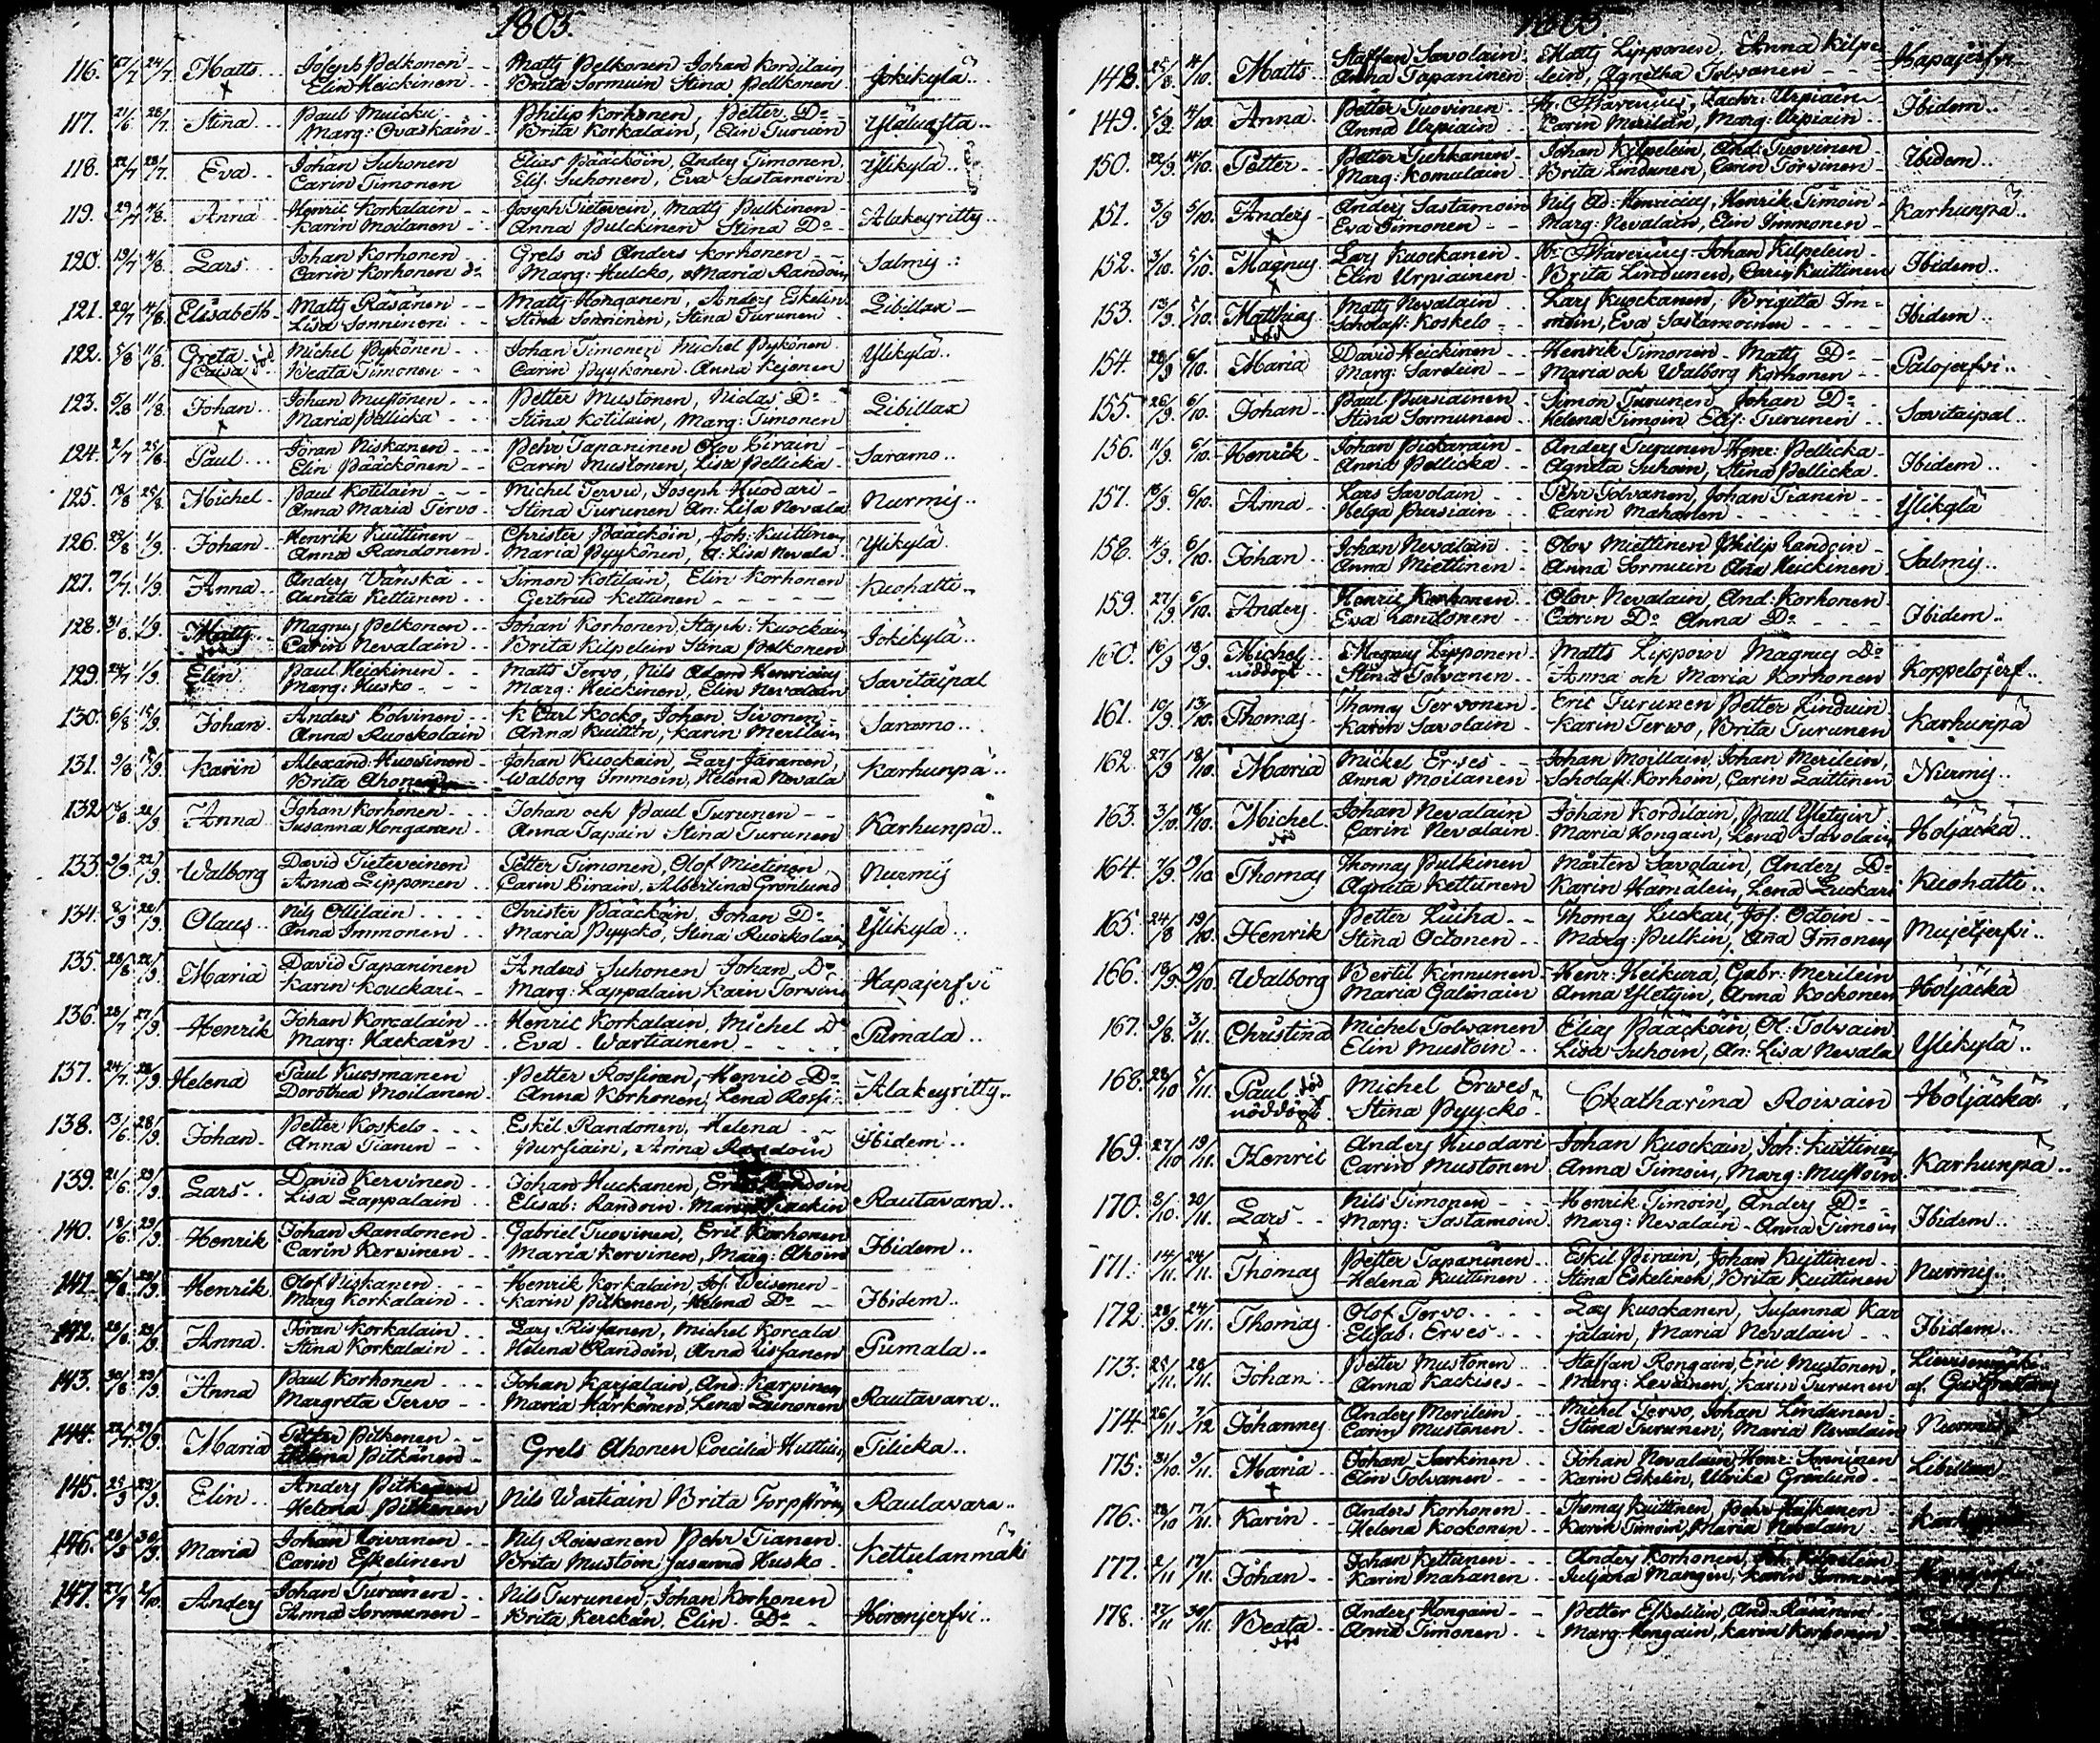 1805.
116. 17/7 24/7 Matts Joseph Pelkonen Matts Pelkonen Johan Kordilain Jokikylä
Elin Heickinen Brita Sormuin Stina Pellkonen
117. 21/6 28/7 Stina Paul Muicku Philip Korhonen, Petter Do
Marg: Ovaskain Brita Korkalain, Elin Turuan
118. 22/7 28/7 Eva Johan Suhonen Elias Pääcköin, Anders Timonen Ylikylä
Carin Timonen Elis. Suhonen, Eva Sastamoin
119. 29/7 4/8 Anna Henric Korkalain Joseph Tietevein, Matts Pulkinen Alakeyritty
Karin Moilanen Anna Pulckinen Stina Do
120. 19/7 4/8 Lars Johan Korhonen Grels och Anders Korhonen Salmis
Carin Korhonen Marg: Hulcko, Maria Randoin
121. 20/7 4/8 Elisabeth Matts Räsänen Matts Honganen, Anders Eskelin Libillax
Lisa Sonninen Stina Sonninen, Stina Turunen
122. 5/8 11/8 Greta Michel Pykönen Johan Timonen Michel Pykönen Ylikylä
Caisa död Beata Timonen Carin Pyykonen Anna Kejonen
123. 5/8 11/8 Johan Johan Mustonen Petter Mustonen, Niclas Do Libillax
Maria Pellicka Stina Kotilain, Marg: Timonen
124. 2/7 25/8 Paul Jöran Niskanen Pehr Tapaninen Olov Pirain Saramo
Elin Pääckönen Carin Mustonen, Lisa Pellicka
125. 18/8 25/8 Michel Paul Kotilain Michel Tervo, Joseph Huodari Nurmis
Anna Maria Tervo Stina Turunen An: Lisa Nevala
126. 23/8 1/9 Johan Henrik Kuittinen Christer Pääcköin, Joh: Kuittinen Ylikylä
Anna Randonen Maria Pyykönen, A: Lisa Nevala
127. 7/7 1/9 Anna Anders Vänskä Simon Kotilain, Elin Korhonen Kuohatti
Agneta Kettunen Gertrud Kettunen
128. 31/8 1/9 Matts Magnus Pelkonen Johan Korhonen, Staph: Kuockain Jokikylä
död Carin Nevalain Brita Kilpelein Stina Pelkonen
129. 24/7 1/9 Elin Paul Heickinen Matts Tervo, Nils Adam Henricius Savitaipal
Marg: Husko Marg: Heickinen, Elin Nevalain
130. 6/8 15/9 Johan Anders Tolvinen K Carl Kocko, Johan Sivonen Saramo
Anna Ruockolain Anna Kuittin, Karin Merilein
131. 9/8 15/9 Karin Alexand: Huovinen Johan Kuockain, Lars Järanen, Karhunpä
Brita Ahonen Walborg Immoin, Helena Nevala
132. 18/8 22/9 Anna Johan Korhonen Johan och Paul Turunen Karhunpä
Susanna Honganen Anna Tapain Stina Turunen
133. 9/9 22/9 Walborg David Tieteveinen Petter Timonen, Olof Mietinen Nurmis
Anna Lipponen Carin Pirain, Albertina Grönlund
134. 8/9 22/9 Olaus Nils Ollilain Christer Pääcköin, Johan Do Ylikylä
Anna Immonen Maria Pyyckö, Stina Ruockolain
135. 28/8 22/9 Maria David Tapaninen Anders Suhonen Johan Do Hapajerfvi
Karin Kouckari Marg: Lappalain Karin Torvin
136. 28/7 27/9 Henrik Johan Korcalain Henric Korkalain, Michel Do Pumala
Marg: Hackarin Eva Wartiainen
137. 24/7 28/9 Helena Paul Kuosmanen Petter Rossinen, Henric Do Alakeyritty
Dorothea Moilanen Anna Korhonen, Lena Rossi
138. 13/6 28/9 Johan Petter Koskelo Eskil Randonen, Helena Ibidem
Anna Tianen Pursiain, Anna Randoin
139. 21/6 29/9 Lars David Kervinen Johan Huckanen, Eric Randoin Rautavara
Lisa Lappalain Elisab: Randoin
140. 18/6 29/9 Henrik Johan Randonen Gabriel Tuovinen, Eric Korhonen Ibidem
Carin Kervinen Maria Kervinen, Marg: Ahoin
141. 26/8 29/9 Henrik Olof Niskanen Henrik Korkalain, Jos: Weisenen Ibidem
Marg Korkalain Karin Pitkenen, Helena Do
142. 29/9 Anna Jöran Korkalain Lars Rissanen, Michel Korcala Pumala
Stina Korkalain Helena Randoin, Anna Rissanen
143. 30/8 29/9 Anna Paul Korhonen Johan Karjalain, And: Karpinen Rautavara
Margreta Tervo Maria Härkönen, Lena Leinonen
144. 29/9 Maria Petter Pitkenen Grels Ahonen Coecilia Huttuin Tilicka
Helena Pitkänen
145. 25/9 29/9 Elin Anders Pitkenen Nils Wartiain Brita Torpström Rautavara
Helena Pitkenen
146. 28/9 30/9 Maria Johan Roivanen Nils Roivanen Pehr Tianen Kettulanmäki
Carin Eskelinen Brita Mustoin Susanna Husko
147. 27/7 2/10 Anders Johan Turunen Nils Turunen, Johan Korhonen Hirenjerfvi
Anna Sormunen Brita Kerckän, Elin Do
1805.
148. 25/8 4/10 Matts Staffan Savolain Matts Lipponen, Anna Kilpe Hapajerfvi
Anna Tapaninen lein, Agnetha Tolvanen
149. 5/9 4/10 Anna Petter Tuovinen Zachr: Urpiain Ibidem
Anna Urpiain Carin Merilein, Marg: Urpiain
150. 22/9 4/10 Petter Petter Tuhkanen Johan Kilpelein, And: Tuovinen Ibidem
Marg: Komulain Brita Lindunen, Carin Torvinen
151. 3/9 5/10 Anders Anders Sastamoin Nils Ad: Henricius, Henrik Timoin Karhunpä
Eva Timonen Marg: Nevalain, Elin Immonen
152. 3/10 5/10 Magnus Lars Kuockanen Johan Kilpelein Ibidem
Elin Urpiainen Brita Lindunen, Carin Kuittinen
153. 13/9 5/10 Matthias Matts Nevalain Lars Kuockanen, Brigitta Im Ibidem
död Scholast: Koskelo moin, Eva Sastamoinen
154. 28/9 6/10 Maria David Heickinen Henrik Timonen Matts Do Palojerfvi
Marg: Sarelein Maria och Walborg Korhonen
155. 26/9 6/10 Johan Paul Pursiainen Simon Turunen, Johan Do Savitaipal
Stina Sormunen Helena Timoin Elis: Turunen
156. 11/9 6/10 Henrik Johan Pickarain Anders Turunen Henr: Pellicka Ibidem
Anna Pellicka Agneta Suhoin, Stina Pellicka
157. 18/9 6/10 Anna Lars Savolain Pehr Tolvanen, Johan Tianen Ylikylä
Helga Pursiain Carin Mahonen
158. 4/9 6/10 Johan Johan Nevalain Olov Miettinen Philip Randoin Salmis
Anna Miettinen Anna Sormuin Ana Heickinen
159. 27/9 6/10 Anders Henric Korhonen Olov Nevalain, And: Korhonen Ibidem
Eva Randonen Carin Do Anna Do
160. 16/9 18/9 Michel Magnus Lipponen Matts Lippoin Magnus Do Koppelojerf
nöddöpt Stina Tolvanen Anna och Maria Korhonen
161. 10/9 13/10 Thomas Thomas Tervonen Eric Turunen Petter Linduin Karhunpä
Karin Savolain Karin Tervo, Brita Turunen
162. 27/9 18/10 Maria Mickel Erves Johan Moillain, Johan Merilein, Nurmis
Anna Moilanen Scholast: Korhoin, Carin Laittinen
163. 3/10 18/10 Michel Johan Nevalain Johan Kordilain, Paul Yletyin Höljäckä
död Carin Nevalain Maria Hongain, Lena Savolain
164. 7/9 19/10 Thomas Thomas Pulkinen Mårten Savolain, Anders Do Kuohatti
Agneta Kettunen Karin Hamälein, Lena Luckari
165. 24/8 19/10 Henrik Petter Luiha Thomas Luckari, Jos: Octoin Mujejerfvi
Stina Octonen Marg: Pulkin, Ana Immonen
166. 18/9 19/10 Walborg Bertil Kinnunen Henr: Heikura, Gabr: Merilein Höljäckä
Maria Galinain Anna Yletyin, Anna Kockonen
167. 9/8 3/11 Christina Michel Tolvanen Elias Pääcköin, Ol: Tolvain Ylikylä
Elin Mustoin Lisa Suhoin, An: Lisa Nevala
168. 28/10 5/11 Paul död Michel Erwes Chatharina Roivain Höljäckä
nöddöpt Stina Pyyckö
169. 27/10 19/11 Henric Anders Huodari Johan Kuockain, Joh: Kuittinen Karhunpä
Carin Mustonen Anna Timoin, Marg: Mustoin
170. 3/10 20/11 Lars Nils Timonen Henrik Timoin, Anders Do Ibidem
Marg: Sastamoin Marg: Nevalain Anna Timoin
171. 14/11 24/11 Thomas Petter Tapaninen Eskil Pirain Johan Kuittinen Nurmis
Helena Kuittinen Stina Eskelinen, Brita Kuittinen
172. 28/9 24/11 Thomas Olof Tervo Lars Kuockanen, Susanna Kar Ibidem
Elisab: Erves jalain, Maria Nevalain
173. 25/11 28/11 Johan Petter Mustonen Staffan Rongain, Eric Mustonen
Anna Kackises Marg: Levainen, Karin Turunen
174. 26/11 7/12 Johannes Anders Merilein Michel Tervo, Johan Lindunen Nurmis
Carin Mustonen Stina Turunen, Maria Nevalain
175. 31/10 9/11 Maria Johan Sarkinen Johan Nevalain Henr: Sonninen Libillax
Elin Tolvanen Karin Eskelin, Ulrika Grönlund
176. 28/10 17/11 Karin Anders Korhonen Thomas Kuittinen, Pehr
Helena Kockonen Karin Timoin, Maria Nevalain
177. 2/11 17/11 Johan Johan Kettunen Anders Korhonen, Joh: Kilpelein
Karin Mahanen Juljana Mangin, Karin
178. 27/11 30/11 Beata Anders Hongain Petter Eskelin, And: Räsänen
död Anna Timonen Marg: Hongain, Karin Korhonen